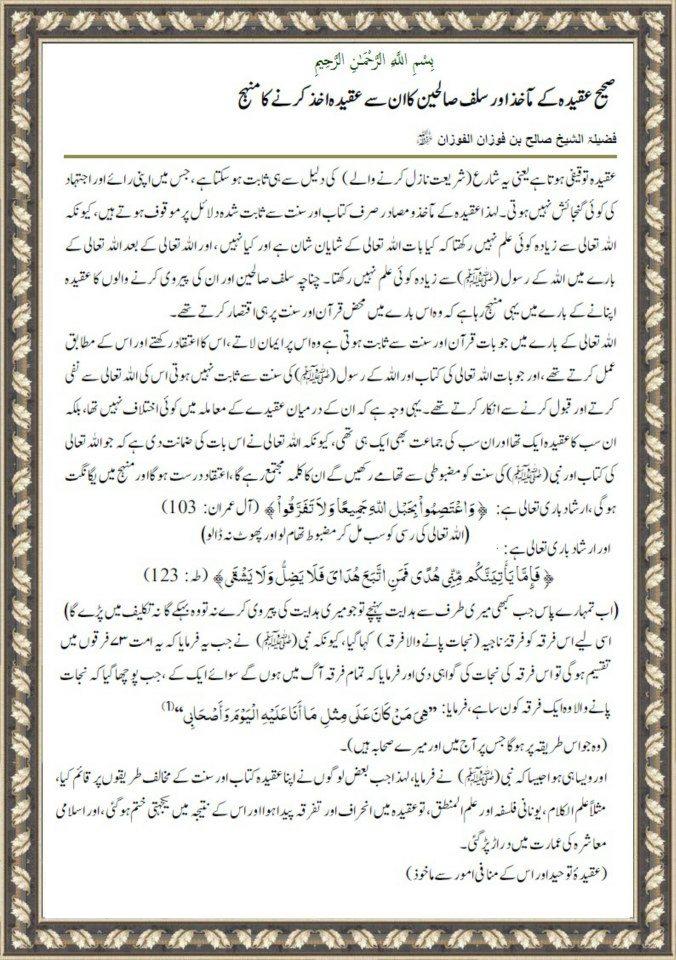 بِسْمِ اللَّهِ الرَّحْمَٰنِ الرَّحِيمِ
صحیح عقیدہ کے مآخذ اور سلف صالحین کا ان سے عقیدہ اخذ کرنے کا منہج
فضیلۃ الشیخ صالح بن فوزان الفوزان حفظہ اللہ
عقیدہ توقیفی ہوتا ہے یعنی یہ شارع (شریعت نازل کرنے والے) کی دلیل سے ہی ثابت ہو سکتا ہے، جس میں اپنی رائے اور اجتہاد
کی کوئی گنجائش نہیں ہوتی۔ لہذا عقیدہ کے مآخذ و مصادر صرف کتاب اور سنت سے ثابت شدہ دلائل پر موقوف ہوتے ہیں، کیونکہ
اللہ تعالی سے زیادہ کوئی علم نہیں رکھتا کہ کیا بات اللہ تعالی کے شایان شان ہے اور کیا نہیں، اور اللہ تعالی کے بعد اللہ تعالی کے
بارے میں اللہ کے رسول (ﷺ) سے زیادہ کوئی علم نہیں رکھتا۔ چناچہ سلف صالحین اور ان کی پیروی کرنے والوں کا عقیدہ
اپنانے کے بارے میں یہی منہج رہا ہے کہ وہ اس بارے میں محض قرآن اور سنت پر ہی اقتصار کرتے تھے۔
اللہ تعالی کے بارے میں جو بات قرآن اور سنت سے ثابت ہوتی ہے وہ اس پر ایمان لاتے، اس کا اعتقاد رکھتے اور اس کے مطابق
عمل کرتے تھے، اور جو بات اللہ تعالی کی کتاب اور اللہ کے رسول (ﷺ) کی سنت سے ثابت نہیں ہوتی اس کی اللہ تعالی سے نفی
کرتے اور قبول کرنے سے انکار کرتے تھے۔ یہی وجہ ہے کہ ان کے درمیان عقیدے کے معاملہ میں کوئی اختلاف نہیں تھا، بلکہ
ان سب کا عقیدہ ایک تھا اور ان سب کی جماعت بھی ایک ہی تھی، کیونکہ اللہ تعالی نے اس بات کی ضمانت دی ہے کہ جو اللہ تعالی
کی کتاب اور نبی (ﷺ) کی سنت کو مضبوطی سے تھامے رکھیں گے ان کا کلمہ مجتمع رہے گا، اعتقاد درست ہوگا اور منہج میں یگانگت
ہوگی، ارشاد باری تعالی ہے: ﴿ وَاعْتَصِمُواْ بِحَبْلِ اللّهِ جَمِيعًا وَلاَ تَفَرَّقُواْ ﴾ (آل عمران: 103)
(اللہ تعالی کی رسی کو سب مل کر مضبوط تھام لو اور پھوٹ نہ ڈالو)
اور ارشاد باری تعالی ہے:
﴿ فَإِمَّا يَأْتِيَنَّكُم مِّنِّي هُدًى فَمَنِ اتَّبَعَ هُدَايَ فَلَا يَضِلُّ وَلَا يَشْقَى﴾ (طہ: 123)
(اب تمہارے پاس جب کبھی میری طرف سے ہدایت پہنچے تو جو میری ہدایت کی پیروی کرے نہ تو وہ بہکے گا نہ تکلیف میں پڑے گا)
اسی لیے اس فرقہ کو فرقۂ ناجیہ (نجات پانے والا فرقہ) کہا گیا، کیونکہ نبی (ﷺ) نے جب یہ فرمایا کہ یہ امت ۷۳ فرقوں میں
تقسیم ہوگی تو اس فرقہ کی نجات کی گواہی دی اور فرمایا کہ تمام فرقہ آگ میں ہوں گے سوائے ایک کے، جب پوچھا گیا کہ نجات
پانے والا وہ ایک فرقہ کون سا ہے، فرمایا: ”هِيَ مَنْ كَانَ عَلَى مِثلِ مَا أَنَا عَلَيْهِ الْيَوْمَ وَأَصْحَابِي“(1)
(وہ جو اس طریقہ پر ہوگا جس پر آج میں اور میرے صحابہ ہیں)۔
اور ویسا ہی ہوا جیسا کہ نبی (ﷺ) نے فرمایا، لہذا جب بعض لوگوں نے اپنا عقیدہ کتاب اور سنت کے مخالف طریقوں پر قائم کیا،
مثلاً علم الکلام، یونانی فلسفہ اور علم المنطق، تو عقیدہ میں انحراف اور تفرقہ پیدا ہوا اور اس کے نتیجہ میں یکجہتی ختم ہو گئی، اور اسلامی
معاشرہ کی عمارت میں دراڑ پڑ گئی۔
(عقیدۂ توحید اور اس کے منافی امور سے ماخوذ)